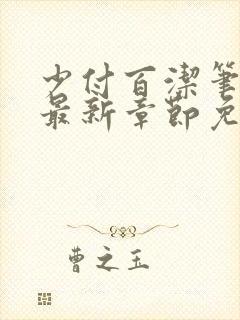 少付百潔筆
最新章節免
曹之玉